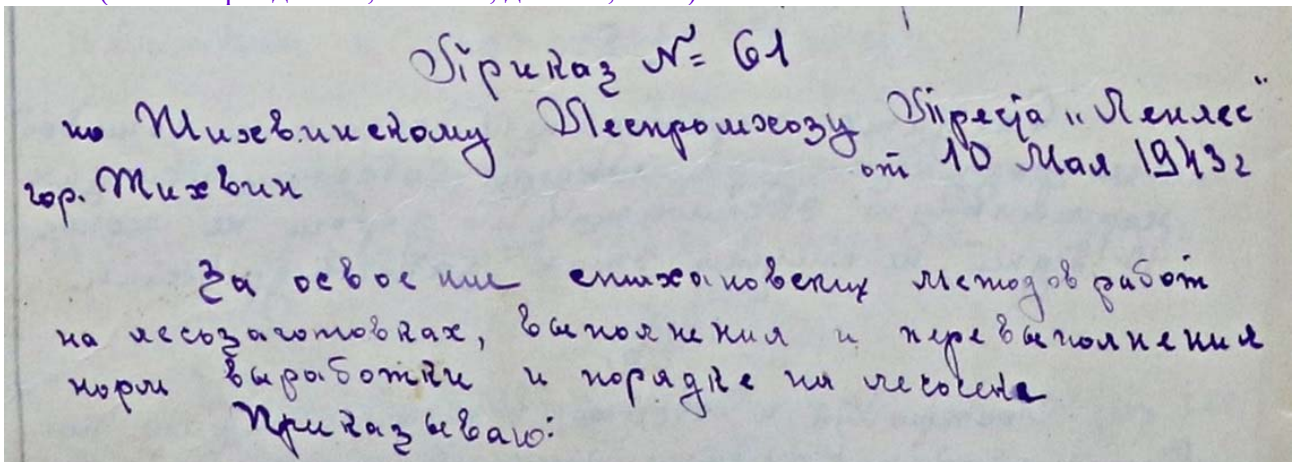 Приказ № 61
по Тихвинскому Леспромхозу Треста „Ленлес"
от 10 Мая 1943 г
гор. Тихвин
За освоение стахановских методов работ
на лесозаготовках, выполнения и перевыполнения
норм выработки и порядке на лесосеке
Приказываю: